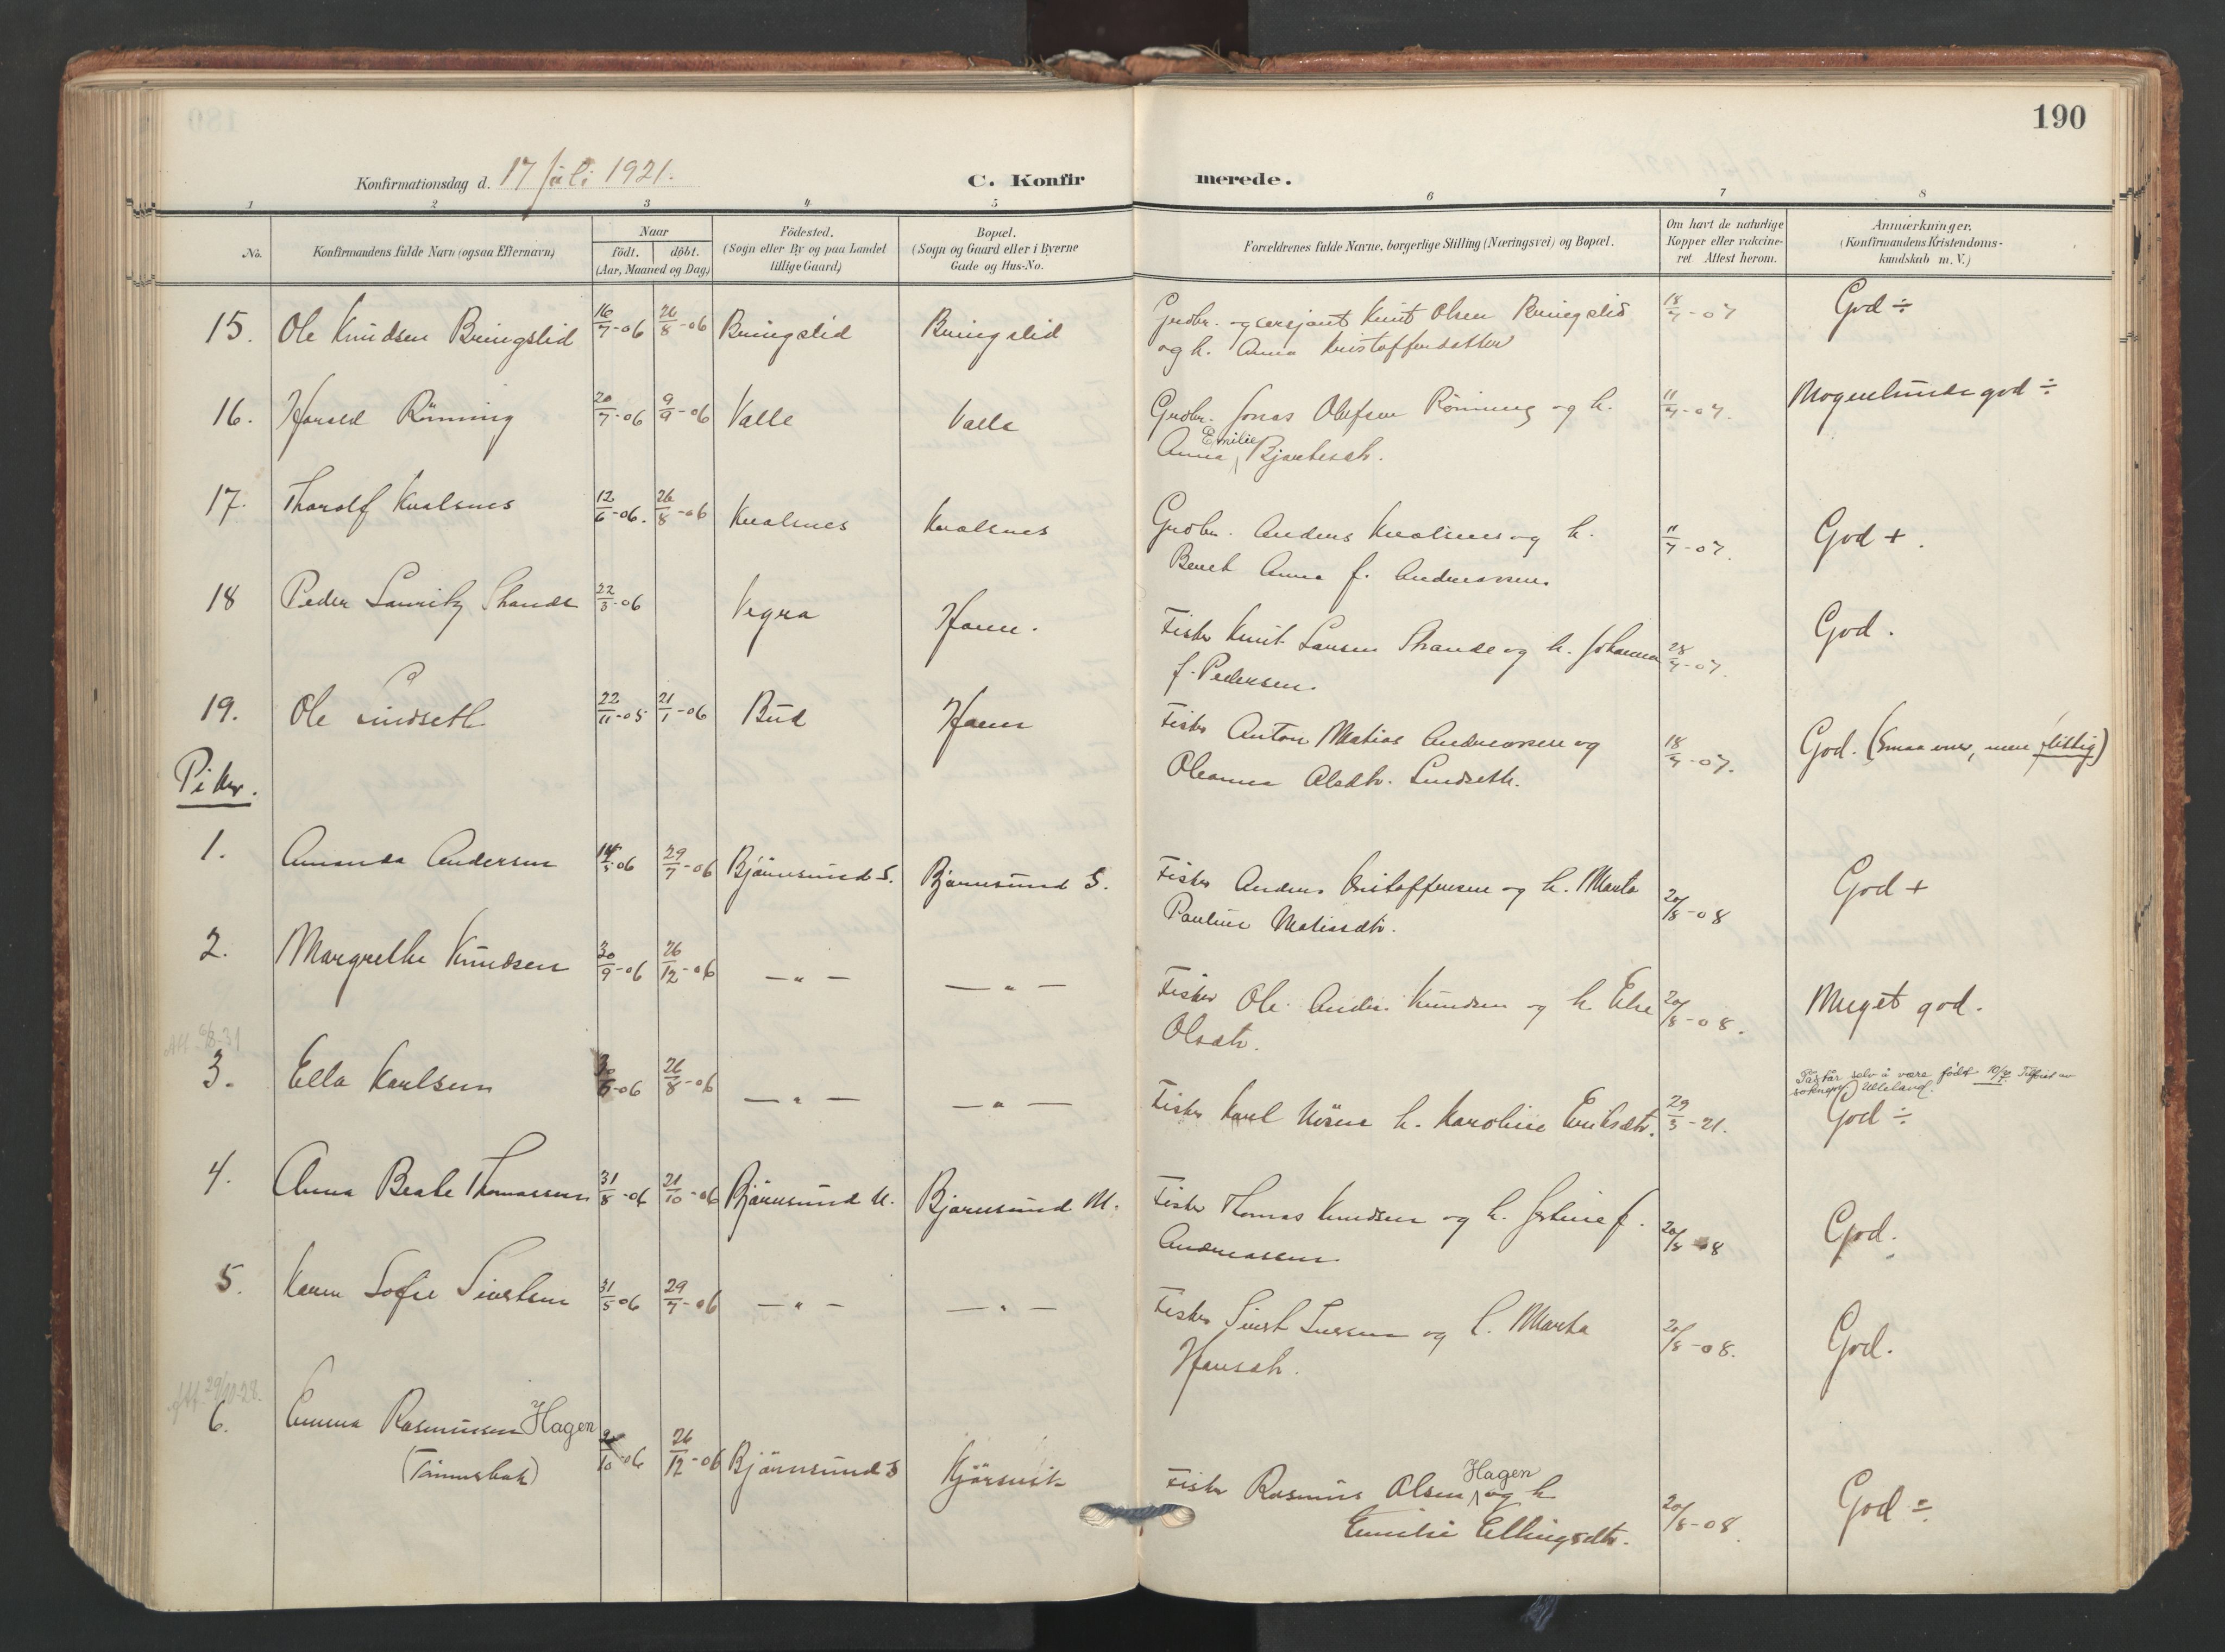 190
Konfirmationsdag d. 17 juli 1921.
C. Konfirmerede.
1 2 3 4 5 6 7 8
No.
Konfirmandens fulde Navn (ogsaa Efternavn)
Naar
födt. döbt.
(Aar, Maaned og Dag)
Födested.
(Sogn eller By og paa Landet
tillige Gaard)
Bopæl.
(Sogn og Gaard eller i Byerne
Gade og Hus-No.
Forældrenes fulde Navne, borgerlige Stilling (Næringsvei) og Bopæl.
Om havt de naturlige
Kopper eller vakcine-
ret Attest herom.
Anmærkninger.
(Konfirmandens Kristendoms-
kundskab m. V.)
15. Ole Knudsen Bringslid 16/7-06 26/8-06 Bringslid Bringslid Grdbr. og sersjant Knut Olsen Bringslid 18/7-07 God ÷
og h. Anna Kristoffersdatter
16. Harald Rönning 20/7-06 9/9-06 Valle Valle Grdbr. Jonas Olufsen Rönning og h. 11/7-07. Nogenlunde god ÷
Anna Emilie Bjartesdtr.
17. Tharolf Kvalsnes 12/6-06. 26/8-06 Kvalsnes Kvalsnes Grdbr. Anders Kvalsnes og h. 11/7-07. God +.
Bereth Anna f. Andreassen.
18 Peder Lauritz Strande 22/3-06 Vigra Havn. Fisker Knut Larsen Strande og h. Johanna 28/7-07. God.
f. Pedersen.
19. Ole Lindseth 22/11-05 21/1-06 Bud Havn Fisker Anton Matias Andreassen og 18/7-07. God. (Smaa evner, men flittig)
Oleanna Olsdtr. Lindseth.
Piker.
1. Amanda Andersen 14/5-06 29/7-06 Björnsund S. Bjørnsund S. Fisker Anders Kristoffersen og h. Marta 20/8-08 God +
Pauline Matiasdtr.
2. Margrethe Knudsen 30/9-06 26/12-06 —"— —"— Fisker Ole Anders Knudsen og h. Else 20/8-08. Meget god.
Olsdtr.
Att 6/8-31
Påstår selv å være født 10/7. Tilføiet av
sokneprest Ulleland.
3. Ella Karlsen 30/6-06 26/8-06 —"— —"— Fisker Karl h. Karoline Eriksdtr. 29/3-21. God ÷
4. Anna Beate Thomassen 31/8-06 21/10-06 Björnsund M. Bjørnsund M. Fisker Thomas Knudsen og h. Jostine f. 20/8-08 God.
Andreassen.
5. Karen Sofie Sivertsen 31/5-06 29/7-06 —"— —"— Fisker Sivert Iversen og h. Marta 20/8-08. God.
Hansdtr.
Att. 29/10-28.
6. Emma Rasmussen Hagen /10-06 26/12-06 Björnsund S Kjörsvik Fisker Rasmus Olsen Hagen og h. 20/8-08. God ÷
Emilie Ellingsdtr.